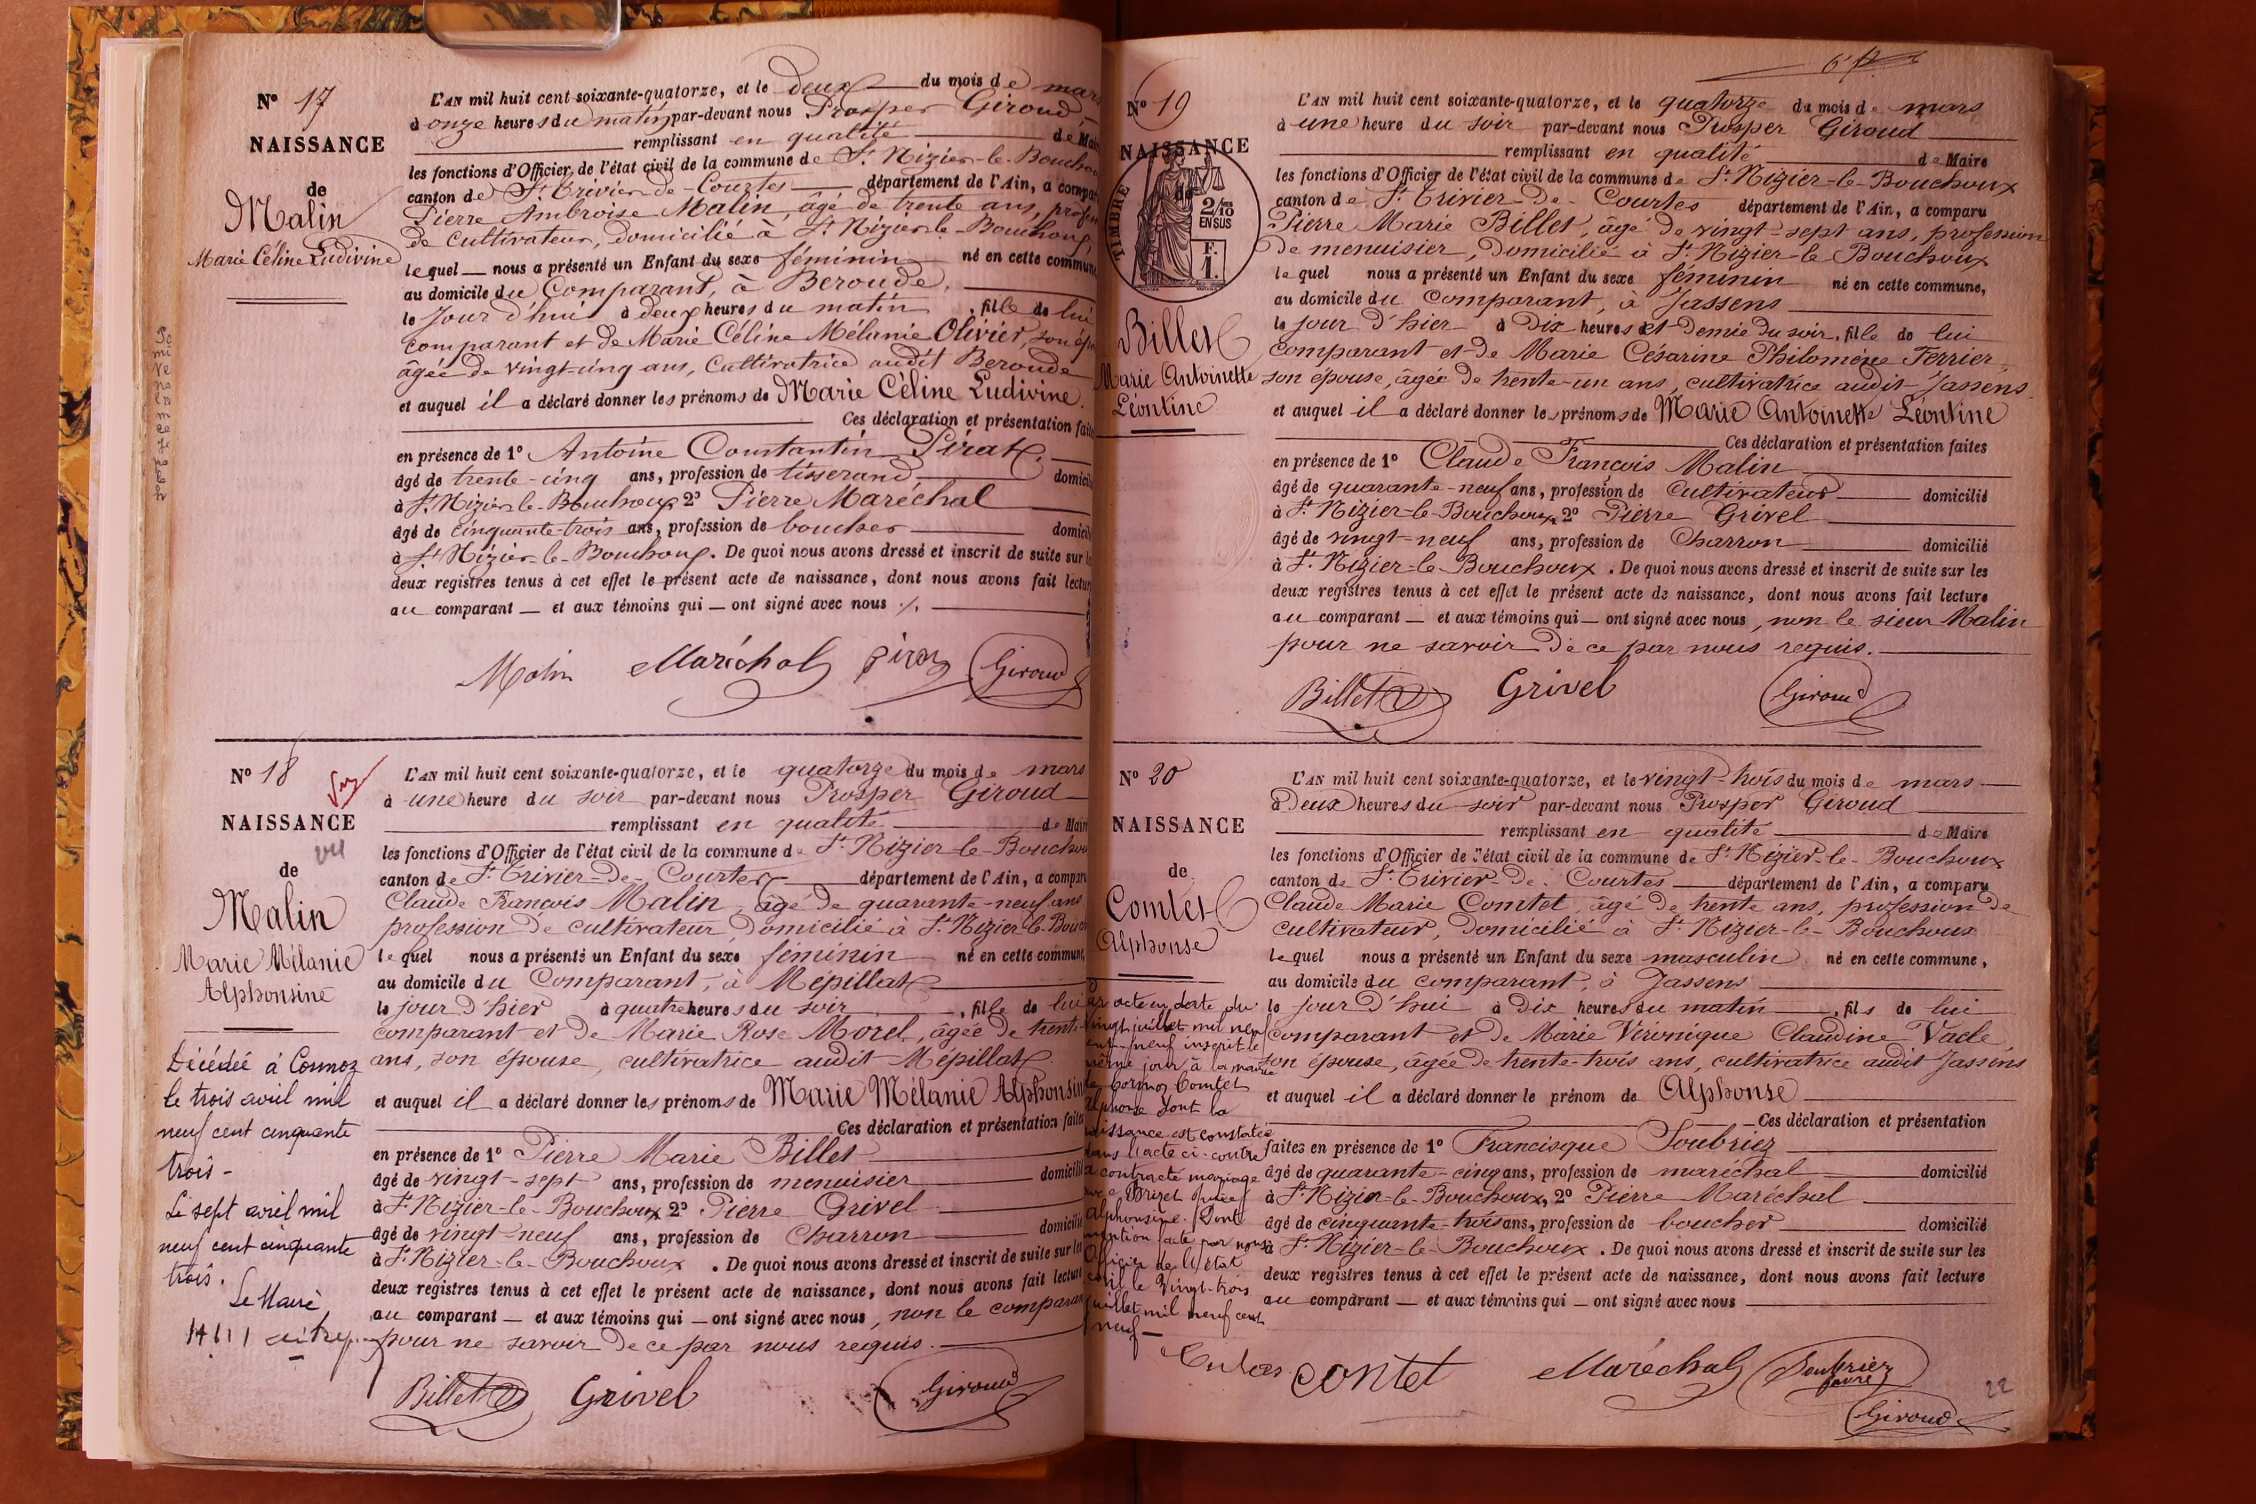 Nº 17
NAISSANCE
de
Malin
Marie Céline Ludivine
L'AN mil huit cent soixante-quatorze, et le deux du mois de mars
à onze heures du matin par-devant nous Prosper Giroud,
remplissant en qualité de Mai
les fonctions d'Officier de l'état civil de la commune de St. Nizier-le-Bouchou
canton de St. Trivier-de-Courtes département de l'Ain, a compar
Pierre Ambroise Malin, âgé de trente ans, profes
de cultivateur, domicilié à St. Nizier-le-Bouchoux,
lequel nous a présenté un Enfant du sexe féminin né en cette commune
au domicile du Comparant, à Beroude,
le jour d'hui à deux heures du matin, fille de lui
comparant et de Marie Céline Mélanie Olivier, son ép
âgée de vingt-cinq ans, cultivatrice audit Beroude
et auquel il a déclaré donner les prénoms de Marie Céline Ludivine.
Ces déclaration et présentation faite
en présence de 1º Antoine Constantin Pirat,
âgé de trente-cinq ans, profession de tisserand domicili
à St. Nizier-le-Bouchoux 2º Pierre Maréchal
âgé de cinquante-trois ans, profession de boucher domicili
à St. Nizier-le-Bouchoux. De quoi nous avons dressé et inscrit de suite sur le
deux registres tenus à cet effet le présent acte de naissance, dont nous avons fait lectur
au comparant — et aux témoins qui — ont signé avec nous ./.
Malin Maréchal Pirat Giroud
Nº 18
vu
NAISSANCE
de
Malin
Marie Mélanie
Alphonsine
Décédée à Cormoz
le trois avril mil
neuf cent cinquante
trois -
Le sept avril mil
neuf cent cinquante
trois.
Le Maire,
L'AN mil huit cent soixante-quatorze, et le quatorze du mois de mars
à une heure du soir par-devant nous Prosper Giroud
remplissant en qualité de Mair
les fonctions d'Officier de l'état civil de la commune de St. Nizier-le-Bouchou
canton de St. Trivier-de-Courtes département de l'Ain, a compar
Claude François Malin, âgé de quarante-neuf ans
profession de cultivateur, domicilié à St. Nizier-le-Bouch
lequel nous a présenté un Enfant du sexe féminin né en cette commune,
au domicile du Comparant, à Mépillat
le jour d'hier à quatre heures du soir, fille de lui
comparant et de Marie Rose Morel, âgée de trente-
ans, son épouse, cultivatrice audit Mépillat
et auquel il a déclaré donner les prénoms de Marie Mélanie Alphonsin
Ces déclaration et présentation faites
en présence de 1º Pierre Marie Billet
âgé de vingt-sept ans, profession de menuisier domicilié
à St. Nizier-le-Bouchoux 2º Pierre Grivel
âgé de vingt-neuf ans, profession de Charron domicilié
à St. Nizier-le-Bouchoux. De quoi nous avons dressé et inscrit de suite sur les
deux registres tenus à cet effet le présent acte de naissance, dont nous avons fait lecture
au comparant — et aux témoins qui — ont signé avec nous, non le comparan
pour ne savoir de ce par nous requis.
Billet Grivel Giroud
Nº 19
NAISSANCE
de
TIMBRE
2/10
EN SUS
F.
1.
Billet
Marie Antoinette
Léontine
L'AN mil huit cent soixante-quatorze, et le quatorze du mois de mars
à une heure du soir par-devant nous Prosper Giroud
remplissant en qualité de Maire
les fonctions d'Officier de l'état civil de la commune de St. Nizier-le-Bouchoux
canton de St. Trivier-de-Courtes département de l'Ain, a comparu
Pierre Marie Billet, âgé de vingt-sept ans, profession
de menuisier, domicilié à St. Nizier-le-Bouchoux
lequel nous a présenté un Enfant du sexe féminin né en cette commune,
au domicile du Comparant, à Jassens
le jour d'hier à Dix heures et demie du soir, fille de lui
comparant et de Marie Césarine Philomène Ferrier,
son épouse, âgée de trente-un ans, cultivatrice audit Jassens.
et auquel il a déclaré donner les prénoms de Marie Antoinette Léontine
Ces déclaration et présentation faites
en présence de 1º Claude François Malin
âgé de quarante-neuf ans, profession de Cultivateur domicilié
à St. Nizier-le-Bouchoux 2º Pierre Grivel
âgé de vingt-neuf ans, profession de Charron domicilié
à St. Nizier-le-Bouchoux. De quoi nous avons dressé et inscrit de suite sur les
deux registres tenus à cet effet le présent acte de naissance, dont nous avons fait lecture
au comparant — et aux témoins qui — ont signé avec nous, non le sieur Malin
pour ne savoir de ce par nous requis.
Billet Grivel Giroud
Nº 20
NAISSANCE
de
Comtet
Alphonse
acte en date du
vingt juillet mil neuf
cent neuf inscrit le
même jour à la mairie
de Cormoz Comtet
Alphonse dont la
naissance est constatée
dans l'acte ci-contre
a contracté mariage
avec Brizet
Alphonsine. Dont
mention faite par nous
Officier de l'état
civil le vingt-trois
juillet mil neuf cent
neuf —
L'AN mil huit cent soixante-quatorze, et le vingt-trois du mois de mars
à Deux heures du soir par-devant nous Prosper Giroud
remplissant en qualité de Maire
les fonctions d'Officier de l'état civil de la commune de St. Nizier-le-Bouchoux
canton de St. Trivier-de-Courtes département de l'Ain, a comparu
Claude Marie Comtet, âgé de trente ans, profession de
cultivateur, domicilié à St. Nizier-le-Bouchoux
lequel nous a présenté un Enfant du sexe masculin né en cette commune,
au domicile du comparant, à Jassens
le jour d'hui à Dix heures du matin, fils de lui
comparant et de Marie Véronique Claudine Vacle,
son épouse, âgée de trente-trois ans, cultivatrice audit Jassens
et auquel il a déclaré donner le prénom de Alphonse
Ces déclaration et présentation
faites en présence de 1º Francisque Soubriez
âgé de quarante-cinq ans, profession de maréchal domicilié
à St. Nizier-le-Bouchoux, 2º Pierre Maréchal
âgé de cinquante-trois ans, profession de boucher domicilié
à St. Nizier-le-Bouchoux. De quoi nous avons dressé et inscrit de suite sur les
deux registres tenus à cet effet le présent acte de naissance, dont nous avons fait lecture
au comparant — et aux témoins qui — ont signé avec nous
contet Maréchal Soubriez Giroud
22